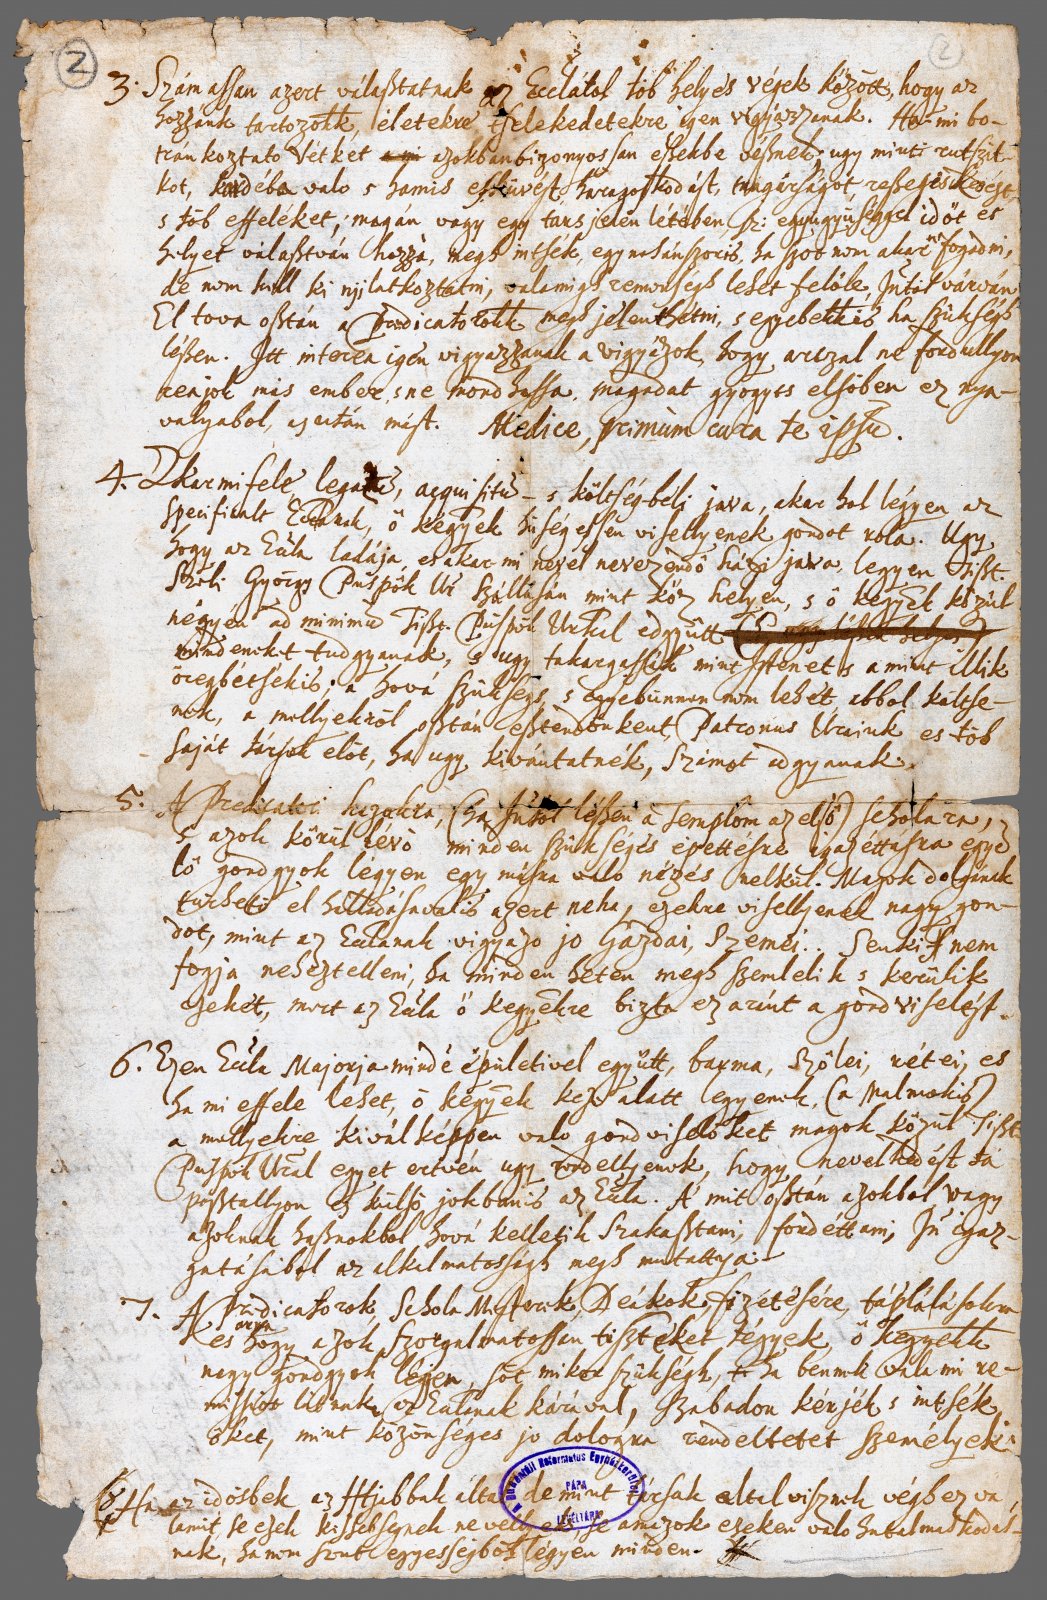 2
2
3. Számossan azert válasttatnak az Ecclátol töb helyes végek között, hogy az
hozzank tartozókk, életekre, tselekedetekre igen vigyázzanak. Ha mi bo-
tránkoztato Vétket azokban bizonyossan eszekbe vésznek, ugy mint: rutszit-
kot, valo s hamis esküvést, haragoskodást, magárságot reszegeskedést,
s töb effeléket; magán vagy egy társ jelen létében sz: egyugyüséggel időt et
helyet válasttván hozzá, megh intsék, egynehánszoris, ha szot nem akar fogadni,
de nem kell ki nyilatkoztatni, valamigh remenségh lehet felöle Jutást várván
El tova osztán a Praedicatorokk megh jelenthetni, s egyebekkis ha szükségh
lészen. Itt interea igen vigyázzanak a vigyázok, hogy arczal ne fordullyon
reajok más ember, s ne mondhassa, magadat gyogyts elsöben ez nya-
valyabol, azután mást. Medice, primum cura te ipsū.
4. Akarmi fele, legatū, acquisitū - s költségbéli java, akar hol légyen az
specificalt Ecclanak, ö kegyek hüségessen visellyenek gondot rola. Ugy
hogy az Eccla ladája, es akar mi nével nevezendö házi java, legyen Tiszt.
Széli György Püspök Ur Szállásán mint köz helyen, s ö kegyek közül
négyen ad minimū Tiszt. Püspök Urkal edgyütt
mindeneket tudgyanak, s ugy takargassák mint Istenet s a mint illik
öregbétsékis; a hová szükségs, s egyebunnan nem lehet abbol költse-
nek, a mellyekröl osztán esztendönkent, Patronus Uraink es töb
saját társok elöt, ha ugy kivántatnék, számot adgyanak.
5. A Predicatori hazakra, (ha Jutot lészen a templom az elsö) scholara,
s azok körül lévö minden szükséges épettésre igazéttásra egyed
lö gondgyok légyen egy másra valo nézés nelkül. Magok dolgának
türhetö el halladásavalis azert neha, ezekre visellyenek nagy gon-
dot, mint az Ecclanak vigyázo jo Gazdai, Szemei. Senkis nem
fogja neheztelleni, ha minden héten megh szemlelik s kerülik
ezeket, mert az Eccla ö kegyekre bizta ez aránt a gondviselést.
6. Ezen Eccla Majorja mindē épületivel együtt, barma, Szölei, rétei, es
ha mi effele lehet, ö kegyek keze alatt legyenek, (a Malmokis)
a mellyekre kiválképpen valo gondviselöket magok közül Tiszt.
Püspök Urral egyet ertvén ugy rendellyenek, hogy nevelkedést ta
pasztallyon es külsö jokbanis az Eccla. A mit osztán azokbol vagy
azoknak hasznokbol hová kelletik szakasztani, fordéttani, Jū igaz-
gatásabol az alkalmatosságh megh mutattya.
7. A Praedicatorok, Schola Mesterek, Deákok fizetésére, táplálásokra
arra
es hogy azok szorgalmatossan tisztéket tégyek, ö kegyekk
nagy gondgyok légen, söt mikor szükségh, + ha bennek valami re-
missiot látnak, az Ecclanak kárával, szabadon kérjék s intsék
öket, mint közönséges jo dologra rendeltetet személyek.
8. Ha az idösbek az Ifjabbak által, de mint társak által visznek végh ez va
lamit, se ezek kissebségnek ne véllyék, se amazok ezeken valo hatalmaskodás-
nak, hanem szent egyességböl légyen minden.
A Dunántúli Református Egyházkerület
PÁPA
LEVÉLTÁRA